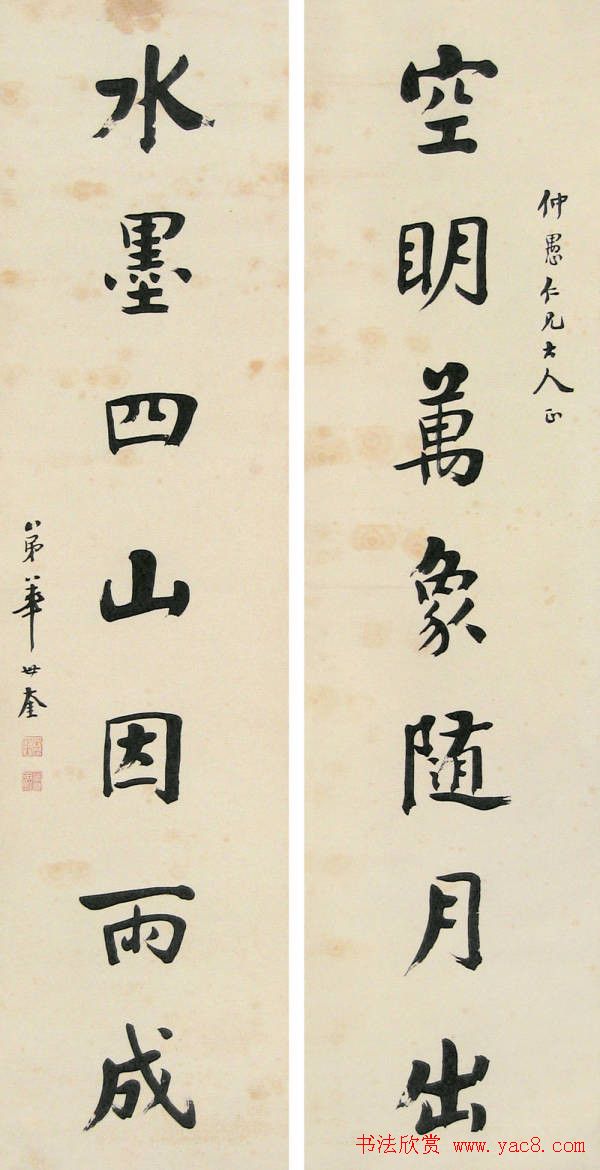 空明萬象隨月出
仲愚仁兄大人正
水墨四山因雨成
弟華世奎
书法欣赏 www.yac8.com